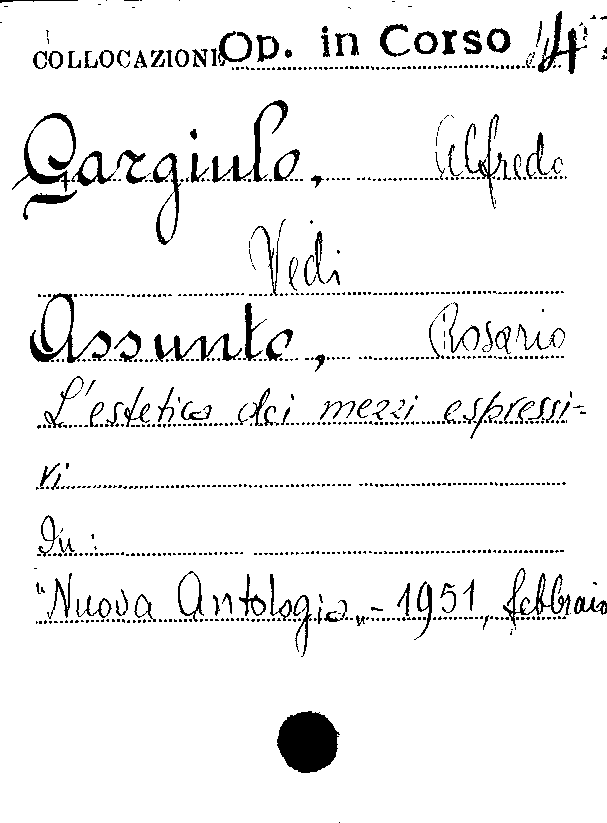 COLLOCAZIONE Op. in Corso 14
Gargiulo, Alfredo
Vedi
Assunto, Rosario
L'estetica dei mezzi espressi=
vi
In:
"Nuova Antologia„ - 1951, febbraio